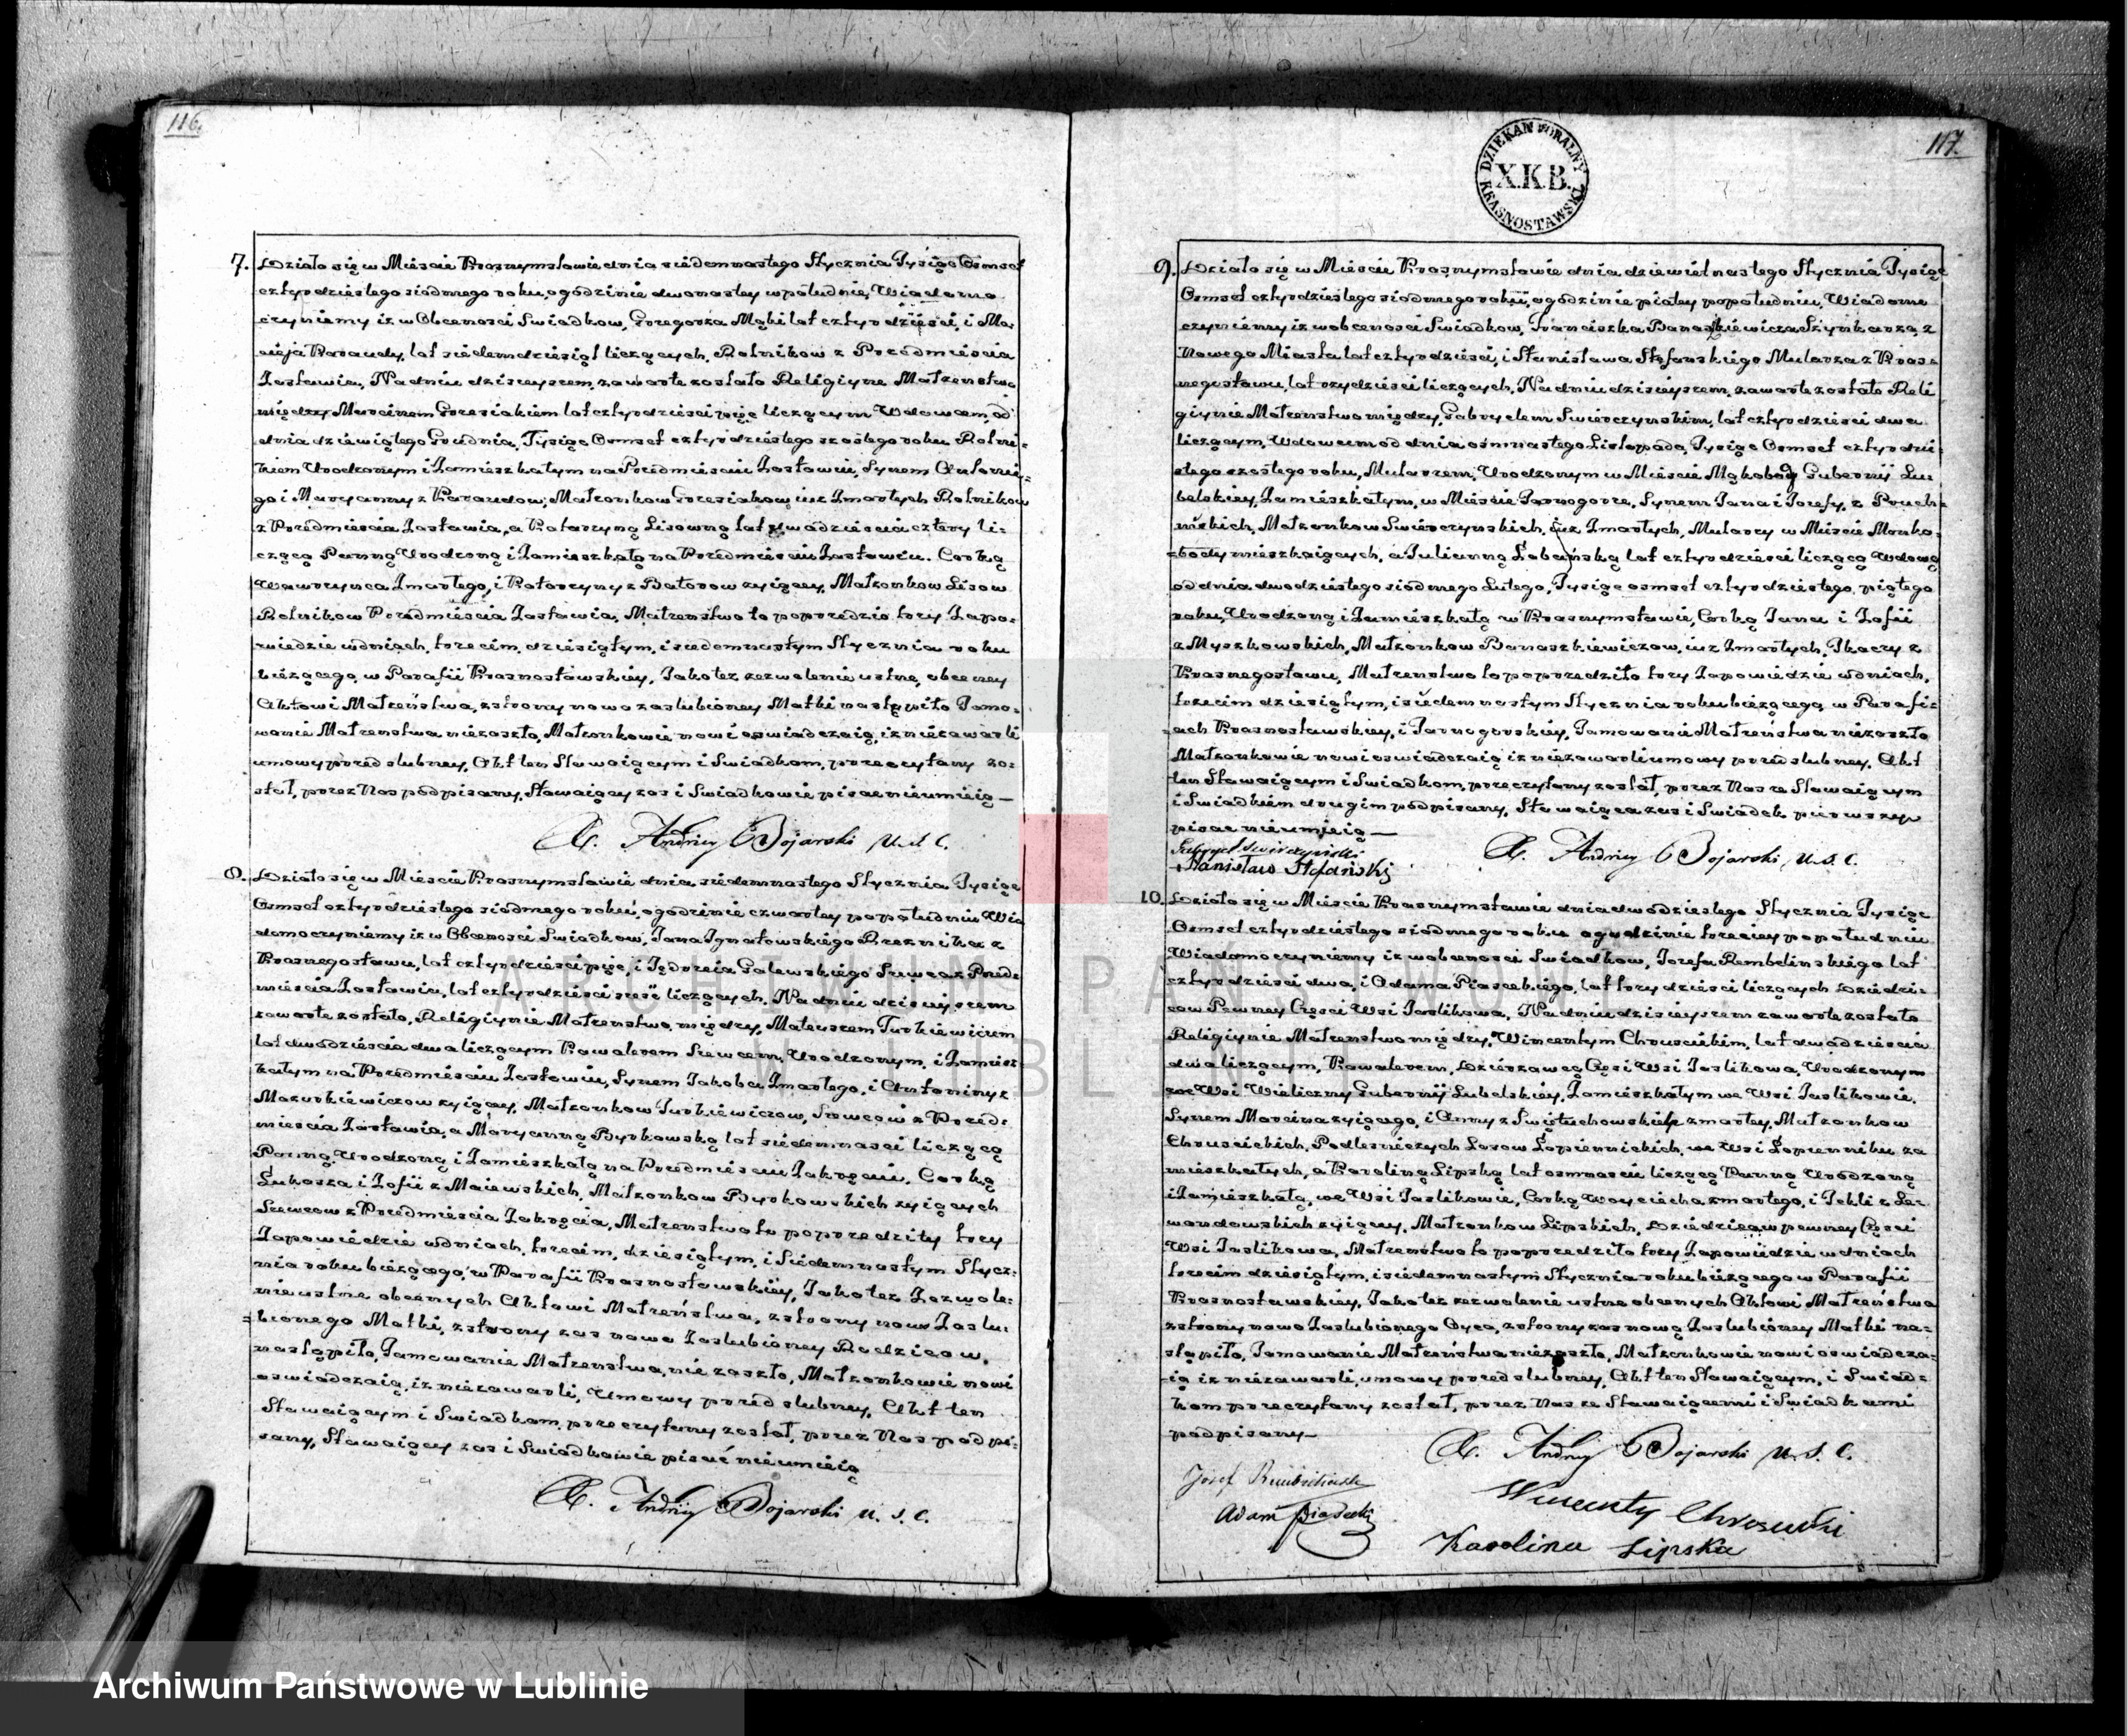 116.
7. Działo się w Mieście Krasnymstawie dnia siedemnastego Stycznia Tysiąc Osmset
cztyrdziestego siódmego roku, o godzinie dwonastey w południe, Wiadomo
czyniemy iż w Obecnosci Swiadkow, Grzegorza Mąki lat cztyrdzieści, i Ma-
cieja Karaudy, lat siedemdziesiąt liczących, Rolnikow z Przedmieścia
Zastawia, Na dniu dzisieyszem, zawarte zostało Religiyne Małżeństwo
między Marcinem Grzesiakiem lat cztyrdzieści pięc liczącym Wdowcem, od
dnia dziewiątego Grudnia, Tysiąc Osmset cztyrdziestego szostego roku Rolni-
kiem Urodzonym i Zamieszkałym na Przedmieściu Zastawiu, Synem Antonie-
go i Maryanny z Karaudow, Małżonkow Grzesiakow, iuż Zmarłych Rolnikow
z Przedmieścia Zastawia, a Katarzyną Lisowną lat dwódzieścia cztery li-
czącą Panną Urodzoną i Zamieszkałą na Przedmieściu Zastawiu. Corką
Wawrzynca Zmarłego, i Katarzyny z Batorow żyiącey, Małżonkow Lisow
Rolnikow Przedmieścia Zastawia, Małżenstwo to poprzedziło trzy Zapo-
wiedzie w dniach, trzecim, dziesiątym, i siedemnastym Stycznia roku
bieżącego, w Parafii Krasnostawskiey, Jako też zezwolenie ustne, obecney
Aktowi Małżeństwa, z strony nowo zaslubioney Matki nastąpiło Tamo-
wanie Małżenstwa niezaszło, Małżonkowie nowi oswiadczaią, iż niezawarli
umowy przed slubney, Akt ten Stawaiącym i Swiadkom, przeczytany zo-
stał, przez Nas podpisany, Stawaiący zas i Swiadkowie pisac nieumieią
X. Andrzey Bojarski U. S. C.
8. Działo się w Mieście Krasnymstawie dnia siedemnastego Stycznia Tysiąc
Osmset cztyrdziestego siódmego roku, o godzinie czwartey popołudniu Wia
domo czyniemy iż w Obecnosci Swiadkow, Jana Ignatowskiego Rzeznika z
Krasnegostawu, lat cztyrdzieści pięc, i Jędrzeia Galewskiego Szewca z Przed-
mieścia Zastawia, lat cztyrdzieści sześć liczących, Na dniu dzisieyszem
zawarte zostało, Religiynie Małżenstwo, między, Mateuszem Turkiewiczem
lat dwódzieścia dwa liczącym Kawalerem Szewcem, Urodzonym, i Zamiesz
kałym na Przedmieściu Zastawiu, Synem Jakoba Zmarłego, i Antoniny z
Mazurkiewiczow żyiącey, Małżonkow Turkiewiczow, Szewcow z Przed-
mieścia Zastawia, a Maryanną Byrkowską lat siedemnascie liczącą
Panną, Urodzoną i Zamieszkałą na Przedmieściu Zakręciu. Corką
Łukasza i Zofii z Maiewskich, Małżonkow Byrkowskich żyiących
Szewcow z Przedmieścia Zakręcia, Małżenstwo to poprzedziły trzy
Zapowiedzie w dniach, trzecim, dziesiątym, i Siedemnastym Stycz-
nia roku bieżącego, w Parafii Krasnostawskiey, Jako też Zezwole-
nie ustne obecnych Aktowi Małżeństwa, z strony nowo Zaslu-
bionego Matki, z strony zas nowo Zaslubioney Rodzicow,
nastąpiło, Tamowanie Małżenstwa, nie zaszło, Małżonkowie nowi
oswiadczaią, iż niezawarli, Umowy przed slubney, Akt ten
Stawaiącym i Swiadkom przeczytany został, przez Nas podpi-
sany, Stawaiący zas i Swiadkowie pisać nieumieią
X. Andrzey Bojarski U. S. C.
117.
DZIEKAN FORALNY
X.K.B.
KRASNOSTAWSKI
9. Działo się w Mieście Krasnymstawie dnia dziewietnastego Stycznia Tysiąc
Osmset cztyrdziestego siódmego roku, o godzinie piątey popołudniu, Wiadomo
czyniemy iż w obecnosci Swiadkow, Franciszka Banaszkiewicza Szynkarza, z
Nowego Miasta lat cztyrdzieści, i Stanisława Stefanskiego Mularza z Kras-
negostawu, lat trzydzieści liczących, Na dniu dzisieyszem, zawarte zostało Reli
giynie Małżenstwo między, Gabryelem Swierczynskim, lat cztyrdzieści dwa
liczącym, Wdowcem od dnia ośmnastego Listopada, Tysiąc Osmset cztyrdzie-
stego szostego roku, Mularzem, Urodzonym w Mieście Mąkobody Gubernij Lu-
belskiey, Zamieszkałym, w Mieście Tarnogorze, Synem Jana i Jozefy, z Pruch-
nińskich, Małżonkow Swierczynskich, iuż Zmarłych, Mularzy w Mieście Monko-
body mieszkaiących, a Julianną Łabańską lat cztyrdzieści liczącą Wdową
od dnia dwudziestego siódmego Lutego, Tysiąc osmset cztyrdziestego, piątego
roku, Urodzoną i Zamieszkałą w Krasnymstawie, Corką Jana i Zofii
z Myszkowskich, Małżonkow Banaszkiewiczow, iuż Zmarłych, Tkaczy z
Krasnegostawu, Małżenstwo to poprzedziło trzy Zapowiedzie w dniach,
trzecim dziesiątym, i siedemnastym Stycznia roku bieżącego, w Parafi-
ach Krasnostawskiey, i Tarnogorskiey, Tamowanie Małżeństwa niezaszło
Małżonkowie nowi oswiadczaią iż niezawarli umowy przed slubney, Akt
ten Stawaiącym i Swiadkom, przeczytany został, przez Nas ze Stawaiącym
i Swiadkiem drugim podpisany, Stawaiąca zas i Swiadek pierwszy
pisac nieumieią
Gabryel Swierczynski
Stanisław Stefański
X. Andrzey Bojarski, U. S. C.
10. Działo się w Mieście Krasnymstawie dnia dwódziestego Stycznia Tysiąc
Osmset cztyrdziestego siódmego roku o godzinie trzeciey popołudniu
Wiadomo czyniemy iż w obecnosci Swiadkow, Jozefa Rembelinskiego lat
cztyrdzieści dwa, i Adama Piaseckiego, lat trzydzieści liczących Dziedzi-
cow Pewney Części Wsi Jaslikowa, Na dniu dzisieyszem zawarte zostało
Religiynie Małżenstwo między, Wincentym Chruscickim, lat dwadzieścia
dwa liczącym, Kawalerem, Dzierzawcą Częsi Wsi Jaslikowa, Urodzonym
we Wsi Wieliczny Gubernij Lubelskiey, Zamieszkałym we Wsi Jaslikowie.
Synem Marcina żyiącego, i Anny z Swiętuchowskich zmarłey, Małżonkow
Chruscickich, Podlesniczych Lasow Łopiennickich, we Wsi Łopienniku za
mieszkałych, a Karoliną Lipską lat osmnascie liczącą Panną Urodzoną
i Zamieszkałą, we Wsi Jaslikowie, Corką Woyciecha zmarłego, i Tekli z Le-
wandowskich żyiącey, Małżonkow Lipskich, Dziedzicow pewney Częsci
Wsi Jaslikowa, Małżenstwo to poprzedziło trzy Zapowiedzie w dniach
trzecim dziesiątym, i siedemnastym Stycznia roku bieżącego w Parafii
Krasnostawskiey, Jako też zezwolenie ustne obecnych Aktowi Małżeństwa
z strony nowo Zaslubionego Oyca, z strony zas nowo Zaslubioney Matki na-
stąpiło, Tamowanie Małżeństwa niezaszło, Małżonkowie nowi oswiadcza-
ią iż niezawarli, umowy przed slubney, Akt ten Stawaiącym, i Swiad-
kom przeczytany został, przez Nas ze Stawaiącemi i Swiadkami
podpisany
X. Andrzey Bojarski U. S. C.
Jozef Rembelinski
Adam Piasecki
Wincenty Chrosucki
Karolina Lipska
ARCHIWUM PAŃSTWOWE
W LUBLINIE
Archiwum Państwowe w Lublinie